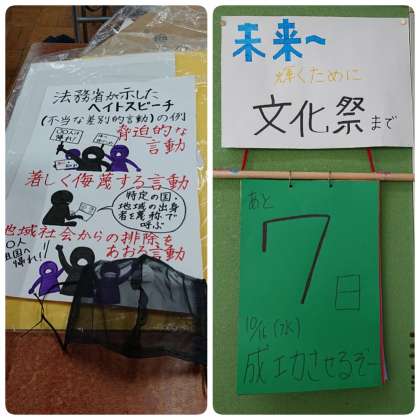 法務省が示した
ヘイトスピーチ
(不当な差別的言動)の例
脅迫的な
言動
〇〇人は
帰れ!
著しく侮蔑する言動
特定の国・
地域の出身
者を蔑称で
呼ぶ
地域社会からの排除を
あおる言動
〇人
国へ
帰れ!!
未来へ
輝くために
文化祭まで
あと
7
日
10/16(水)
成功させるぞー